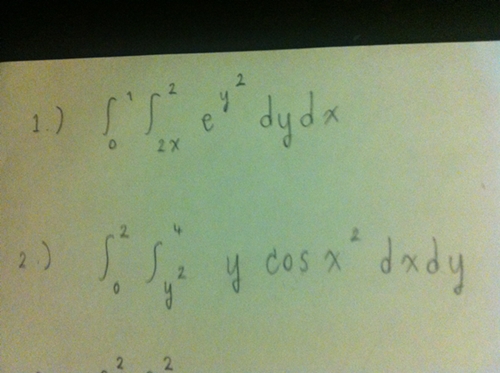 1.) ∫₀¹ ∫₂ₓ² e^y² dy dx
2.) ∫₀² ∫_y²⁴ y cos x² dx dy
∫² ∫²